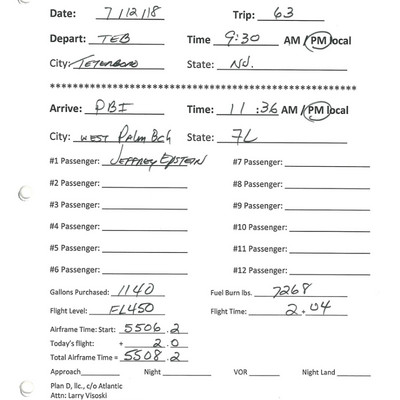 Date: 7/12/18 Trip: 63
Depart: TEB Time 9:30 AM / PM local
City: Teterboro State: NJ.
******************************************************
Arrive: PBI Time: 11:36 AM / PM local
City: West Palm Bch State: FL
#1 Passenger: Jeffrey Epstein #7 Passenger:
#2 Passenger: #8 Passenger:
#3 Passenger: #9 Passenger:
#4 Passenger: #10 Passenger:
#5 Passenger: #11 Passenger:
#6 Passenger: #12 Passenger:
Gallons Purchased: 1140 Fuel Burn lbs. 7268
Flight Level: FL450 Flight Time: 2.04
Airframe Time: Start: 5506.2
Today's flight: + 2.0
Total Airframe Time = 5508.2
Approach Night VOR Night Land
Plan D, llc., c/o Atlantic
Attn: Larry Visoski